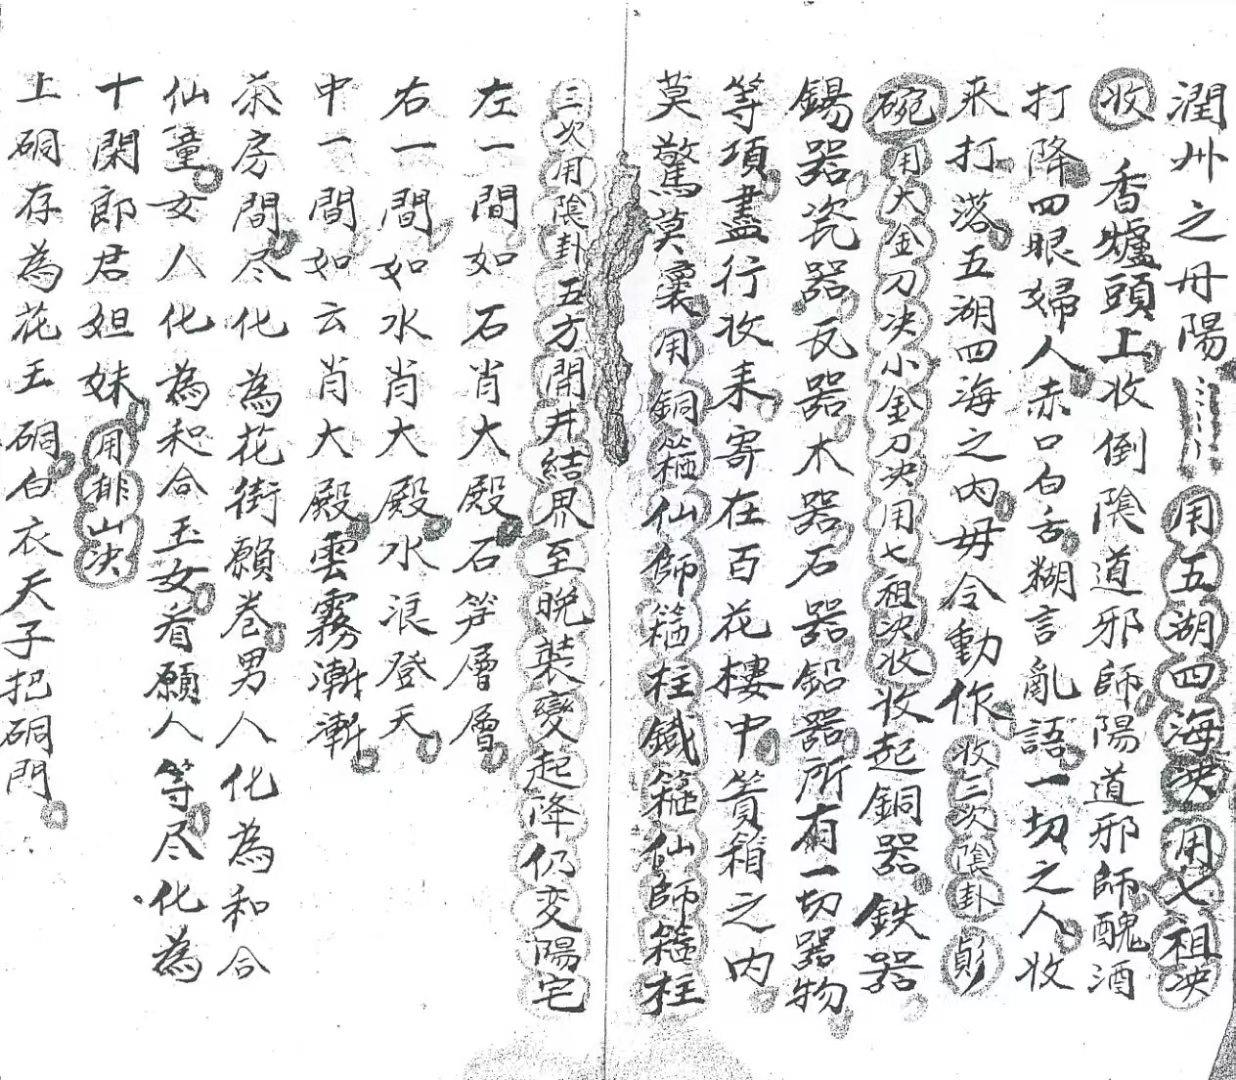 潤州之丹陽用五湖四海决用七祖决
收香爐頭上收倒陰道邪師陽道邪師醜酒
打降四眼婦人赤口白舌糊言亂語一切之人收
来打落五湖四海之内毋令動作收三次陰卦
碗用大金刀决小金刀决用七祖决收收起銅器鉄器
錫器瓷器瓦器木器石器鉛器所有一切器物
等項盡行收来寄在百花樓中篢箱之内
莫驚莫裏用銅箍仙師箍柱鐵箍仙師箍柱
三次用陰卦五方開井結界至晚裝變起降仍变陽宅
左一間如石肖大殿石笋層層
右一間如水肖大殿水浪登天
中一間如云肖大殿雲霧漸漸
茶房間尽化為花街願巷男人化為和合
仙童女人化為和合玉女看願人等尽化為
十閑郎君妲妹用排山决
上硐存為花王硐白衣天子把硐門